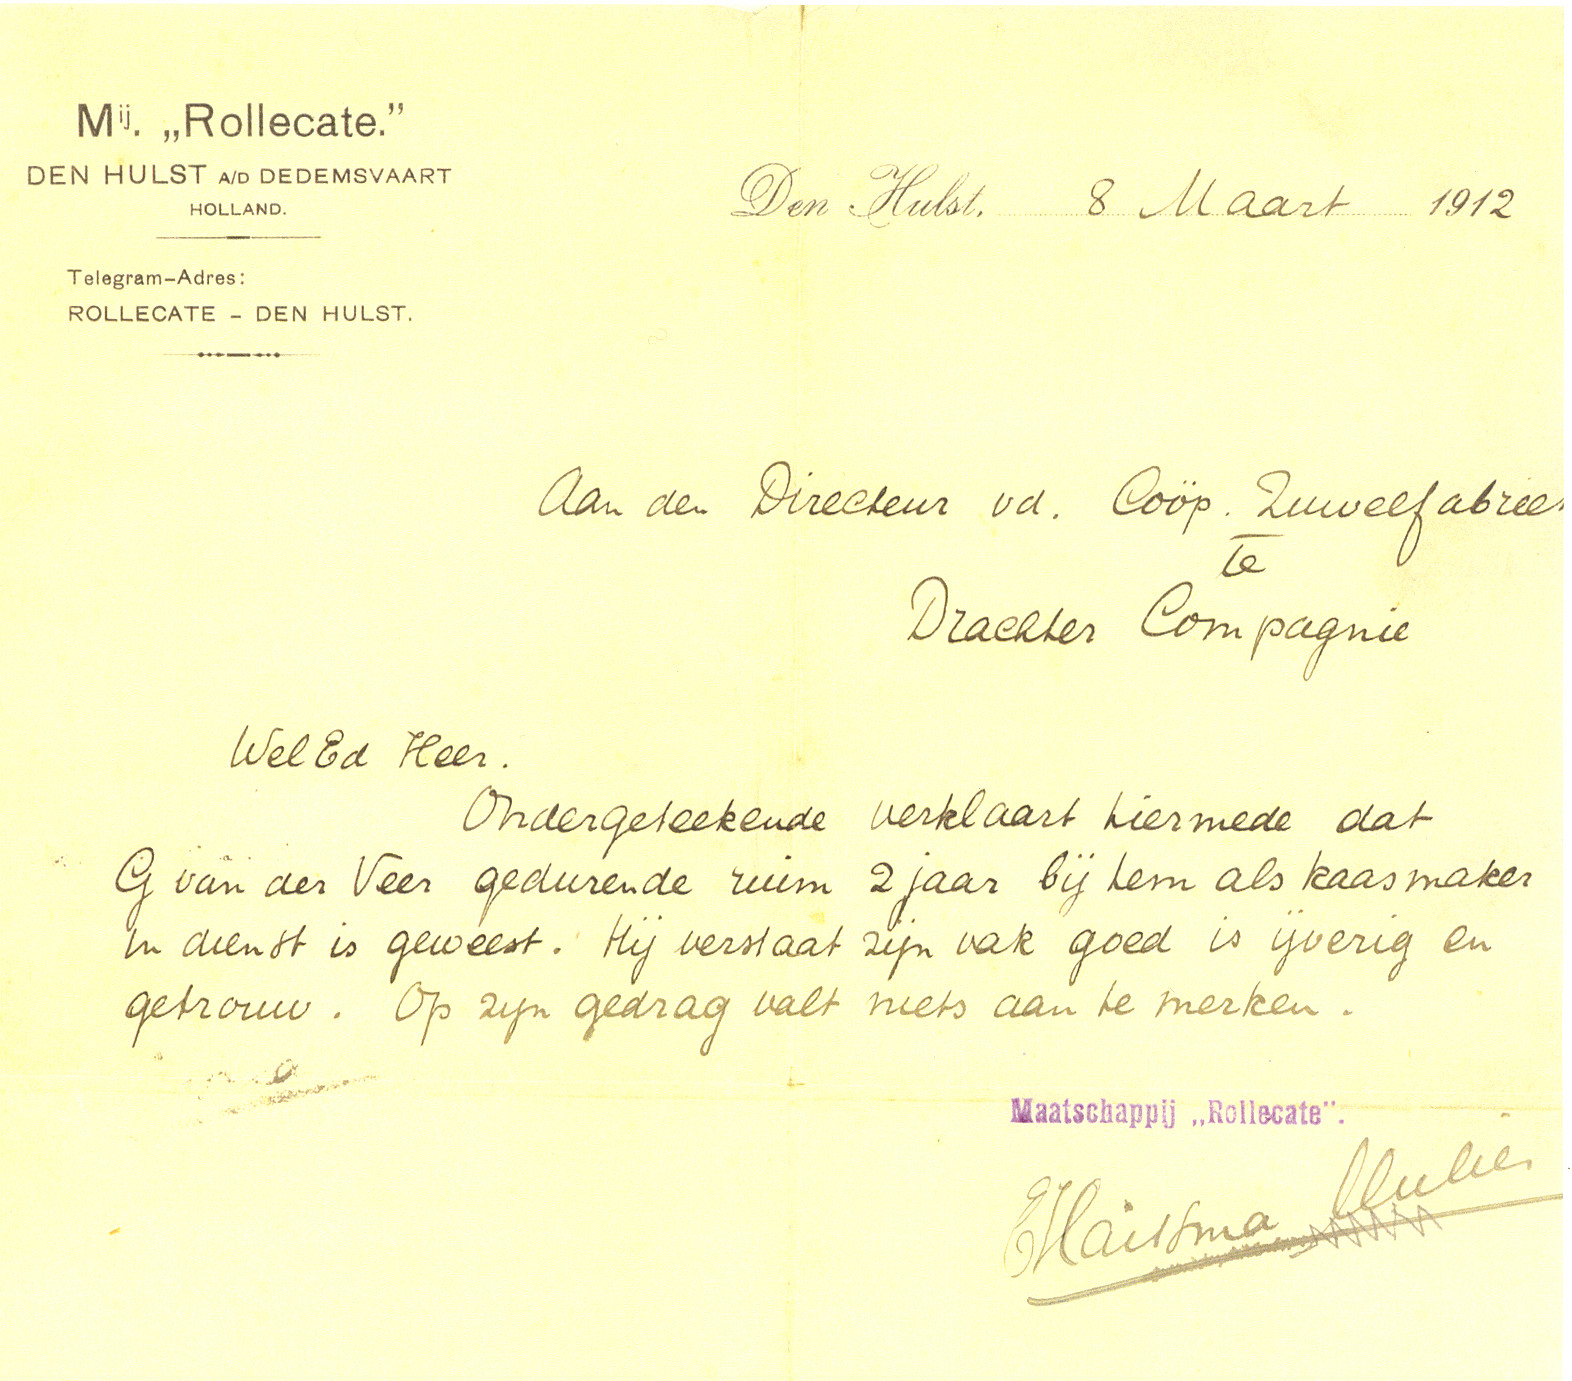 Mij. „Rollecate.”
DEN HULST A/D DEDEMSVAART
HOLLAND.
Telegram-Adres:
ROLLECATE - DEN HULST.
Den Hulst. 8 Maart 1912
Aan den Directeur vd. Coöp. Zuivelfabriek
te
Drachter Compagnie
WelEd Heer.
Ondergeteekende verklaart hiermede dat
G van der Veer gedurende ruim 2 jaar bij hem als kaasmaker
in dienst is geweest. Hij verstaat zijn vak goed is ijverig en
getrouw. Op zijn gedrag valt niets aan te merken.
Maatschappij „Rollecate”.
Haitsma Mulier